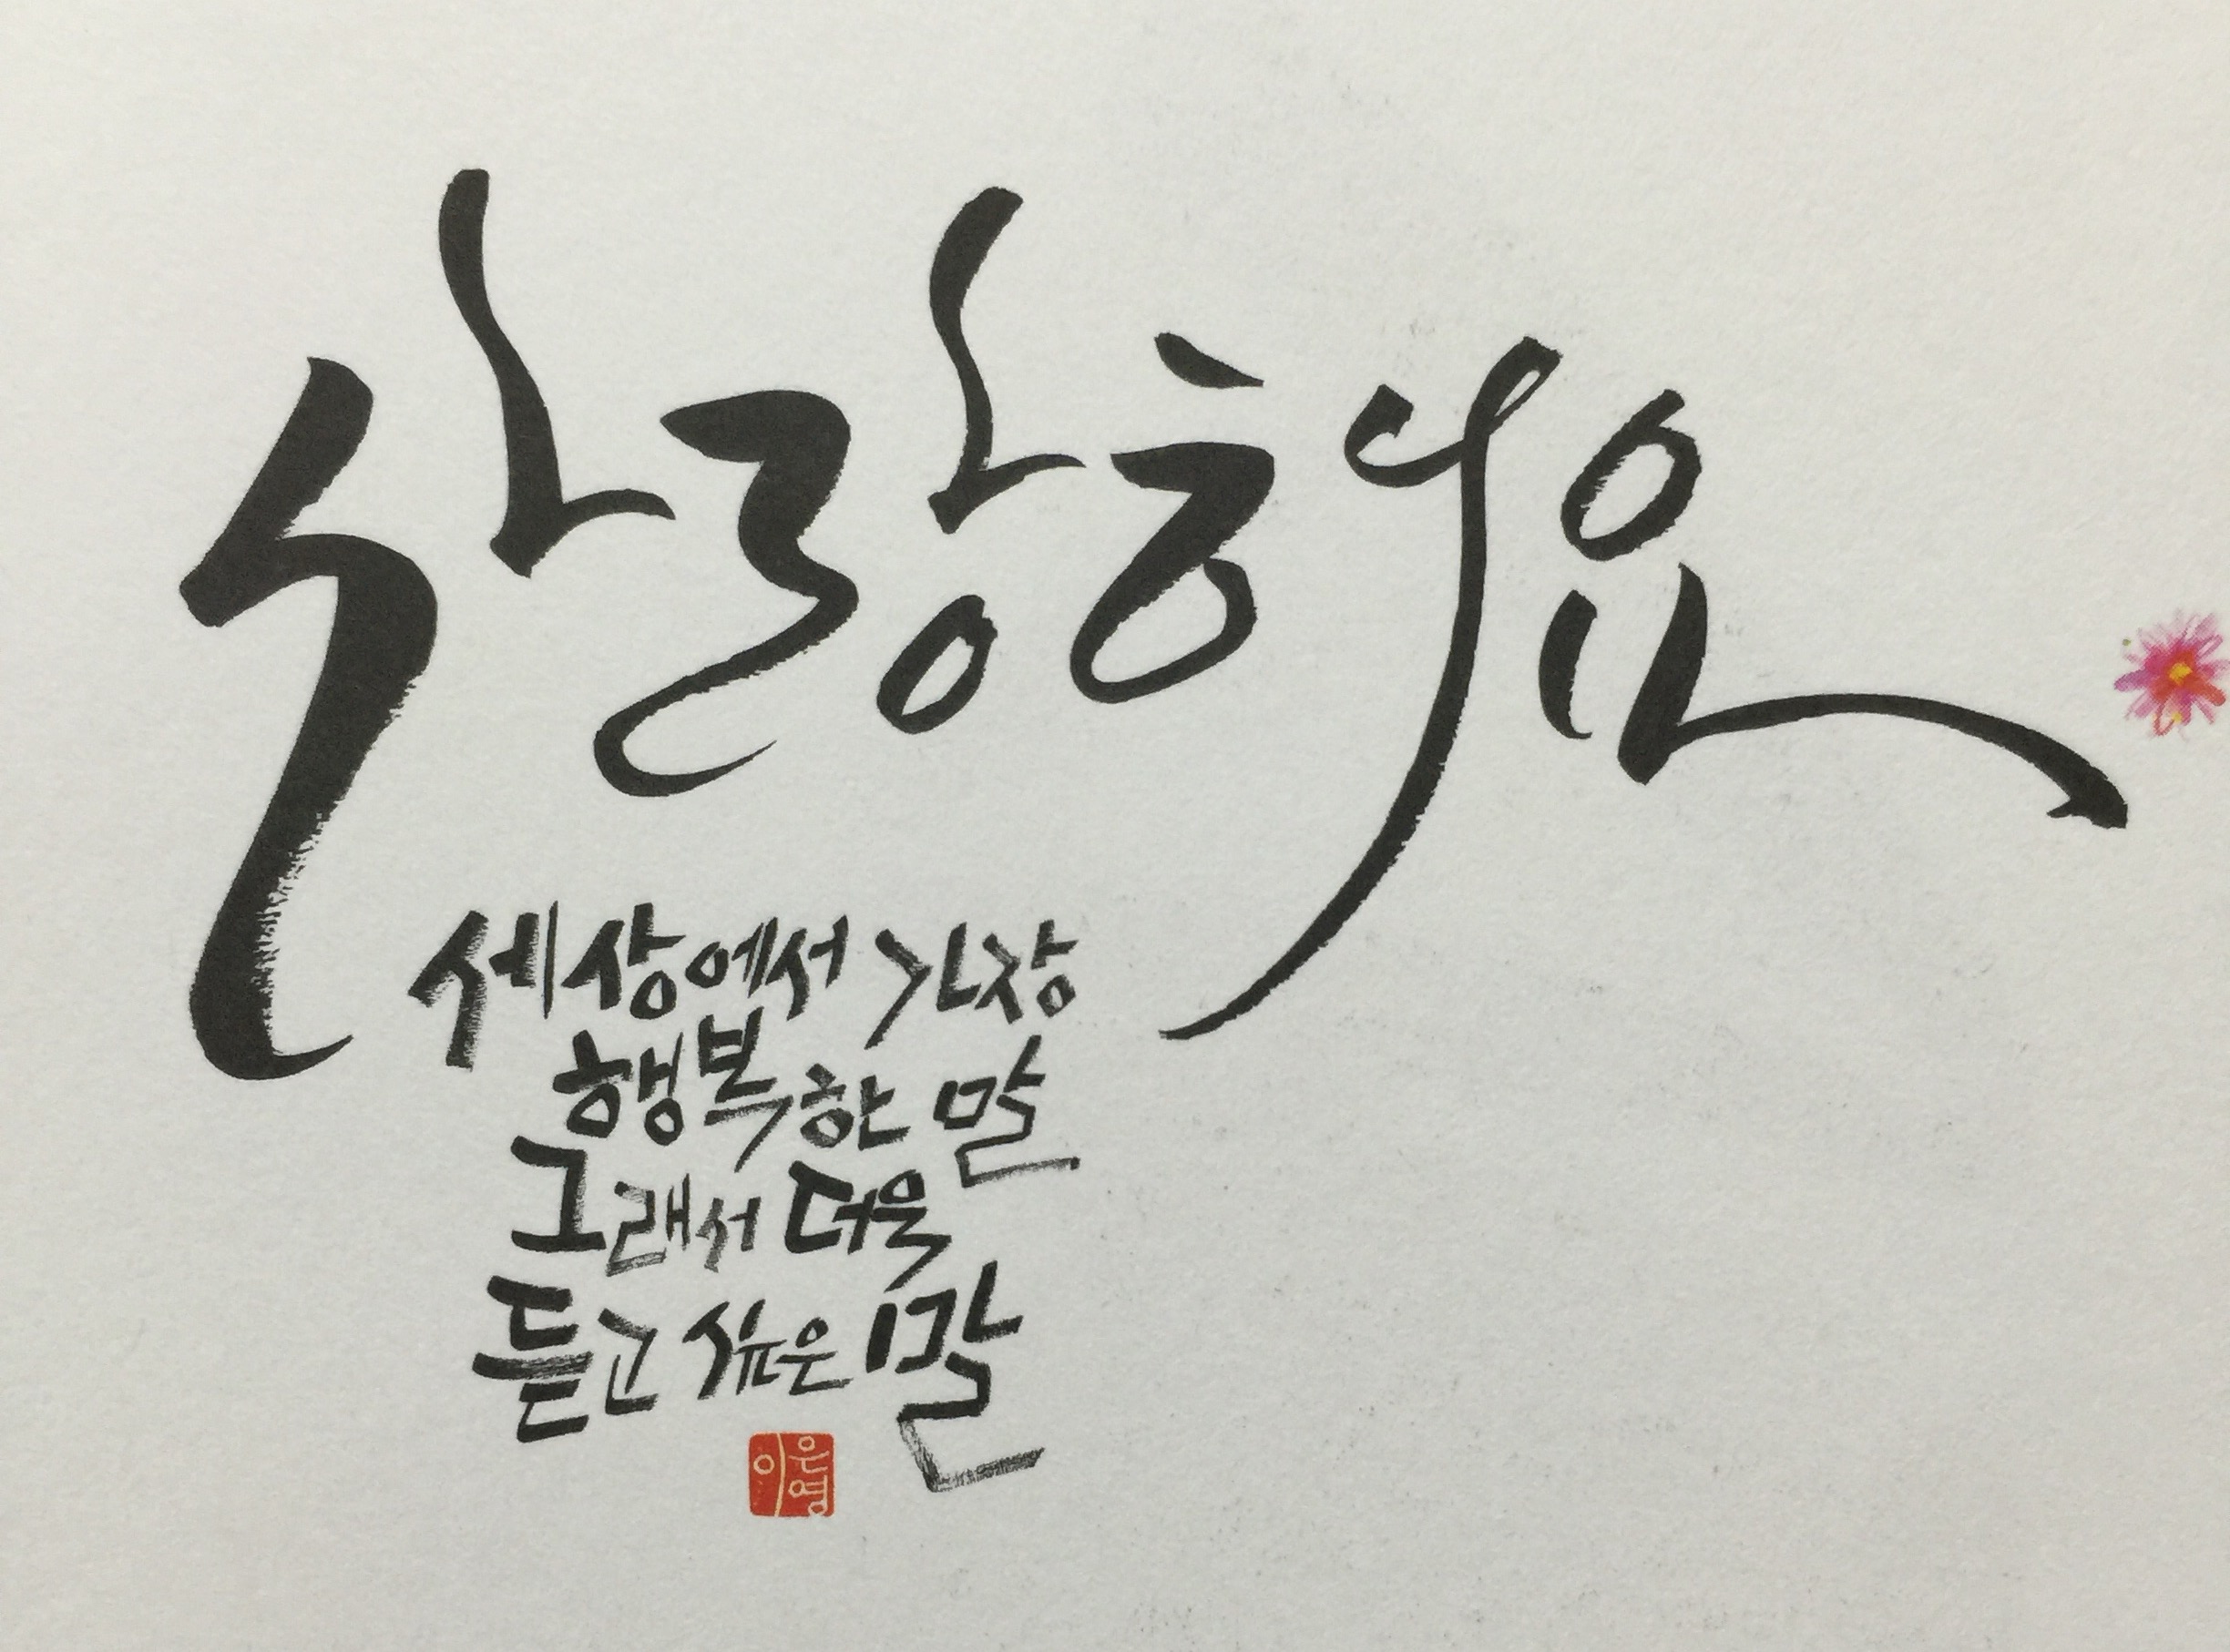 사랑해요
세상에서 가장
행복한 말
그래서 더욱
듣고 싶은 말